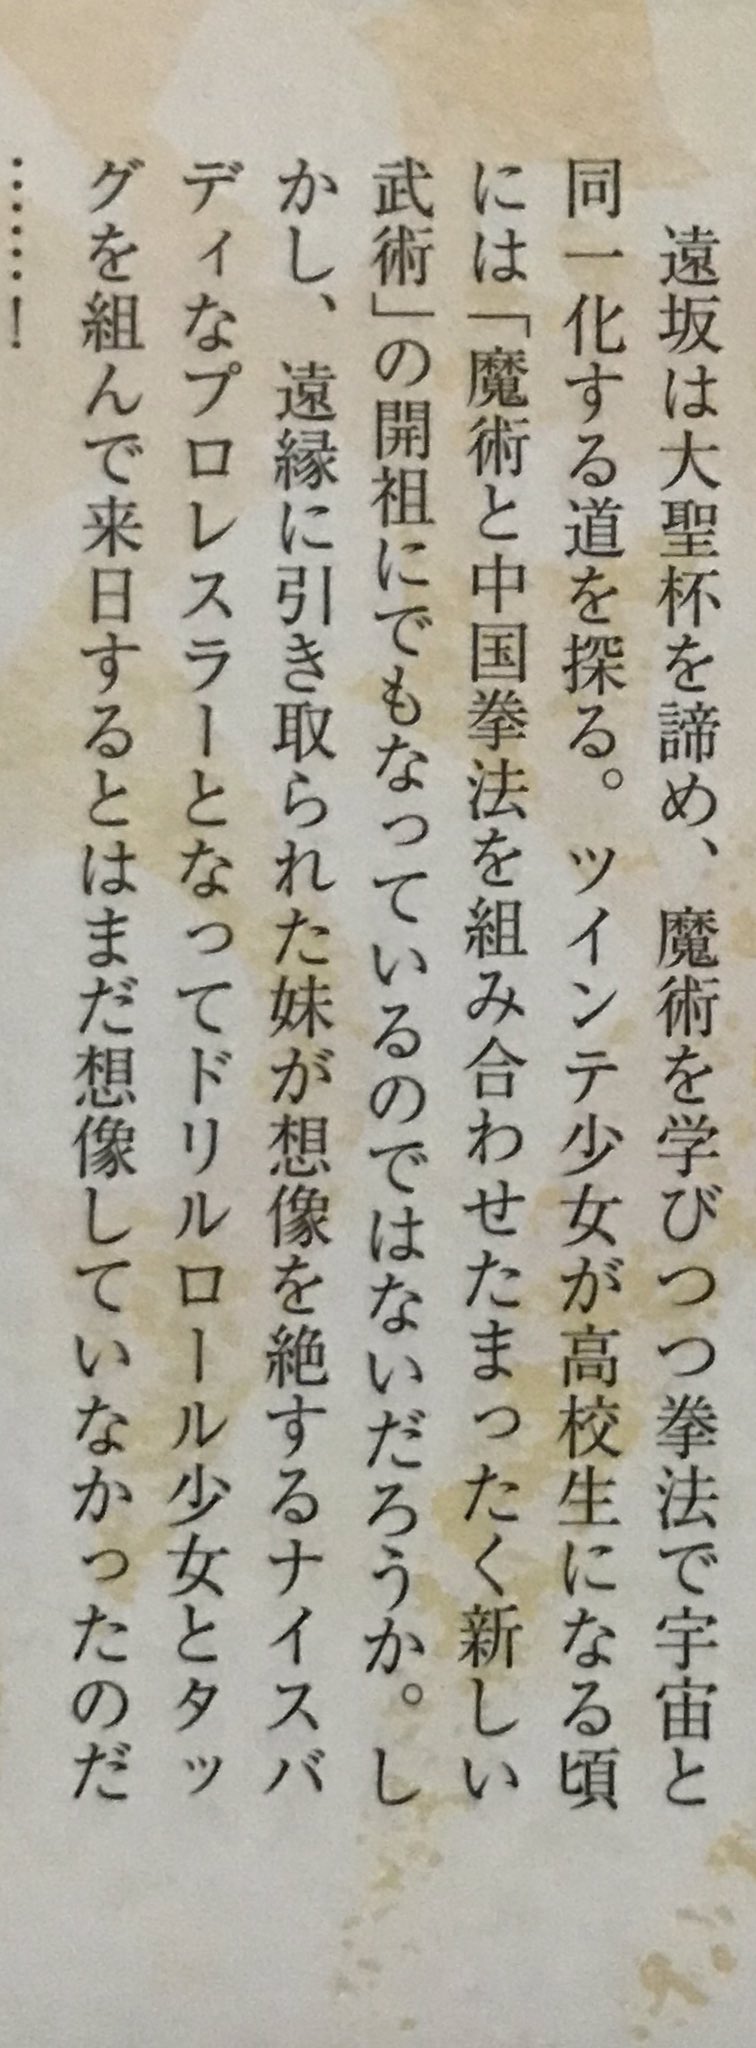 遠坂は大聖杯を諦め、魔術を学びつつ拳法で宇宙と
同一化する道を探る。ツインテ少女が高校生になる頃
には「魔術と中国拳法を組み合わせたまったく新しい
武術」の開祖にでもなっているのではないだろうか。し
かし、遠縁に引き取られた妹が想像を絶するナイスバ
ディなプロレスラーとなってドリルロール少女とタッ
グを組んで来日するとはまだ想像していなかったのだ
……！